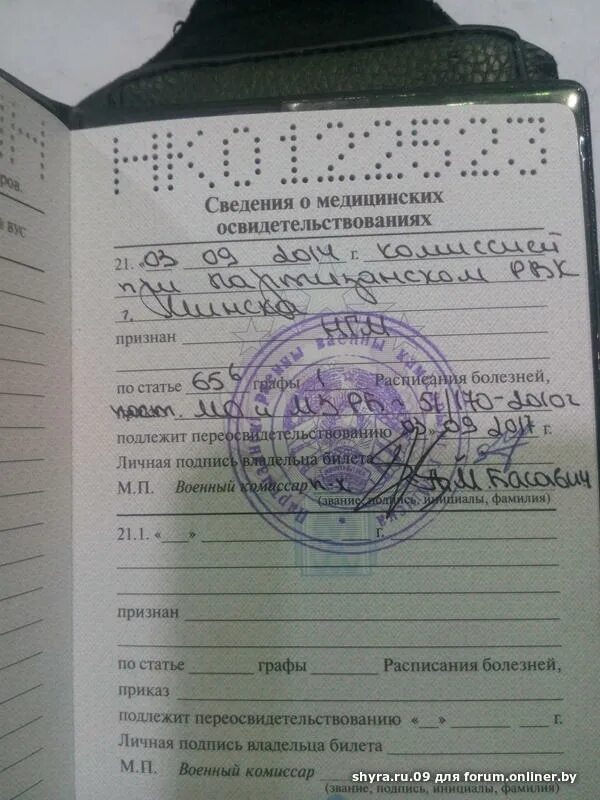 НК0122523
Сведения о медицинских
освидетельствованиях
21. «03 09 2014 г. комиссией
при Партизанском РВК
г. Минска
признан НГМ
по статье 65б графы 1 Расписания болезней,
пост. МО и МЗ РБ - 51/170-2010г
подлежит переосвидетельствованию «03» 09 2017 г.
Личная подпись владельца билета
М.П. Военный комиссар п-к А.М Басович
(звание, подпись, инициалы, фамилия)
21.1. «___» г.
признан
по статье графы Расписания болезней,
приказ
подлежит переосвидетельствованию «__» г.
Личная подпись владельца билета
М.П. Военный комиссар
(звание, подпись, инициалы, фамилия)
ров.
ВУС
shyra.ru.09 для forum.onliner.by